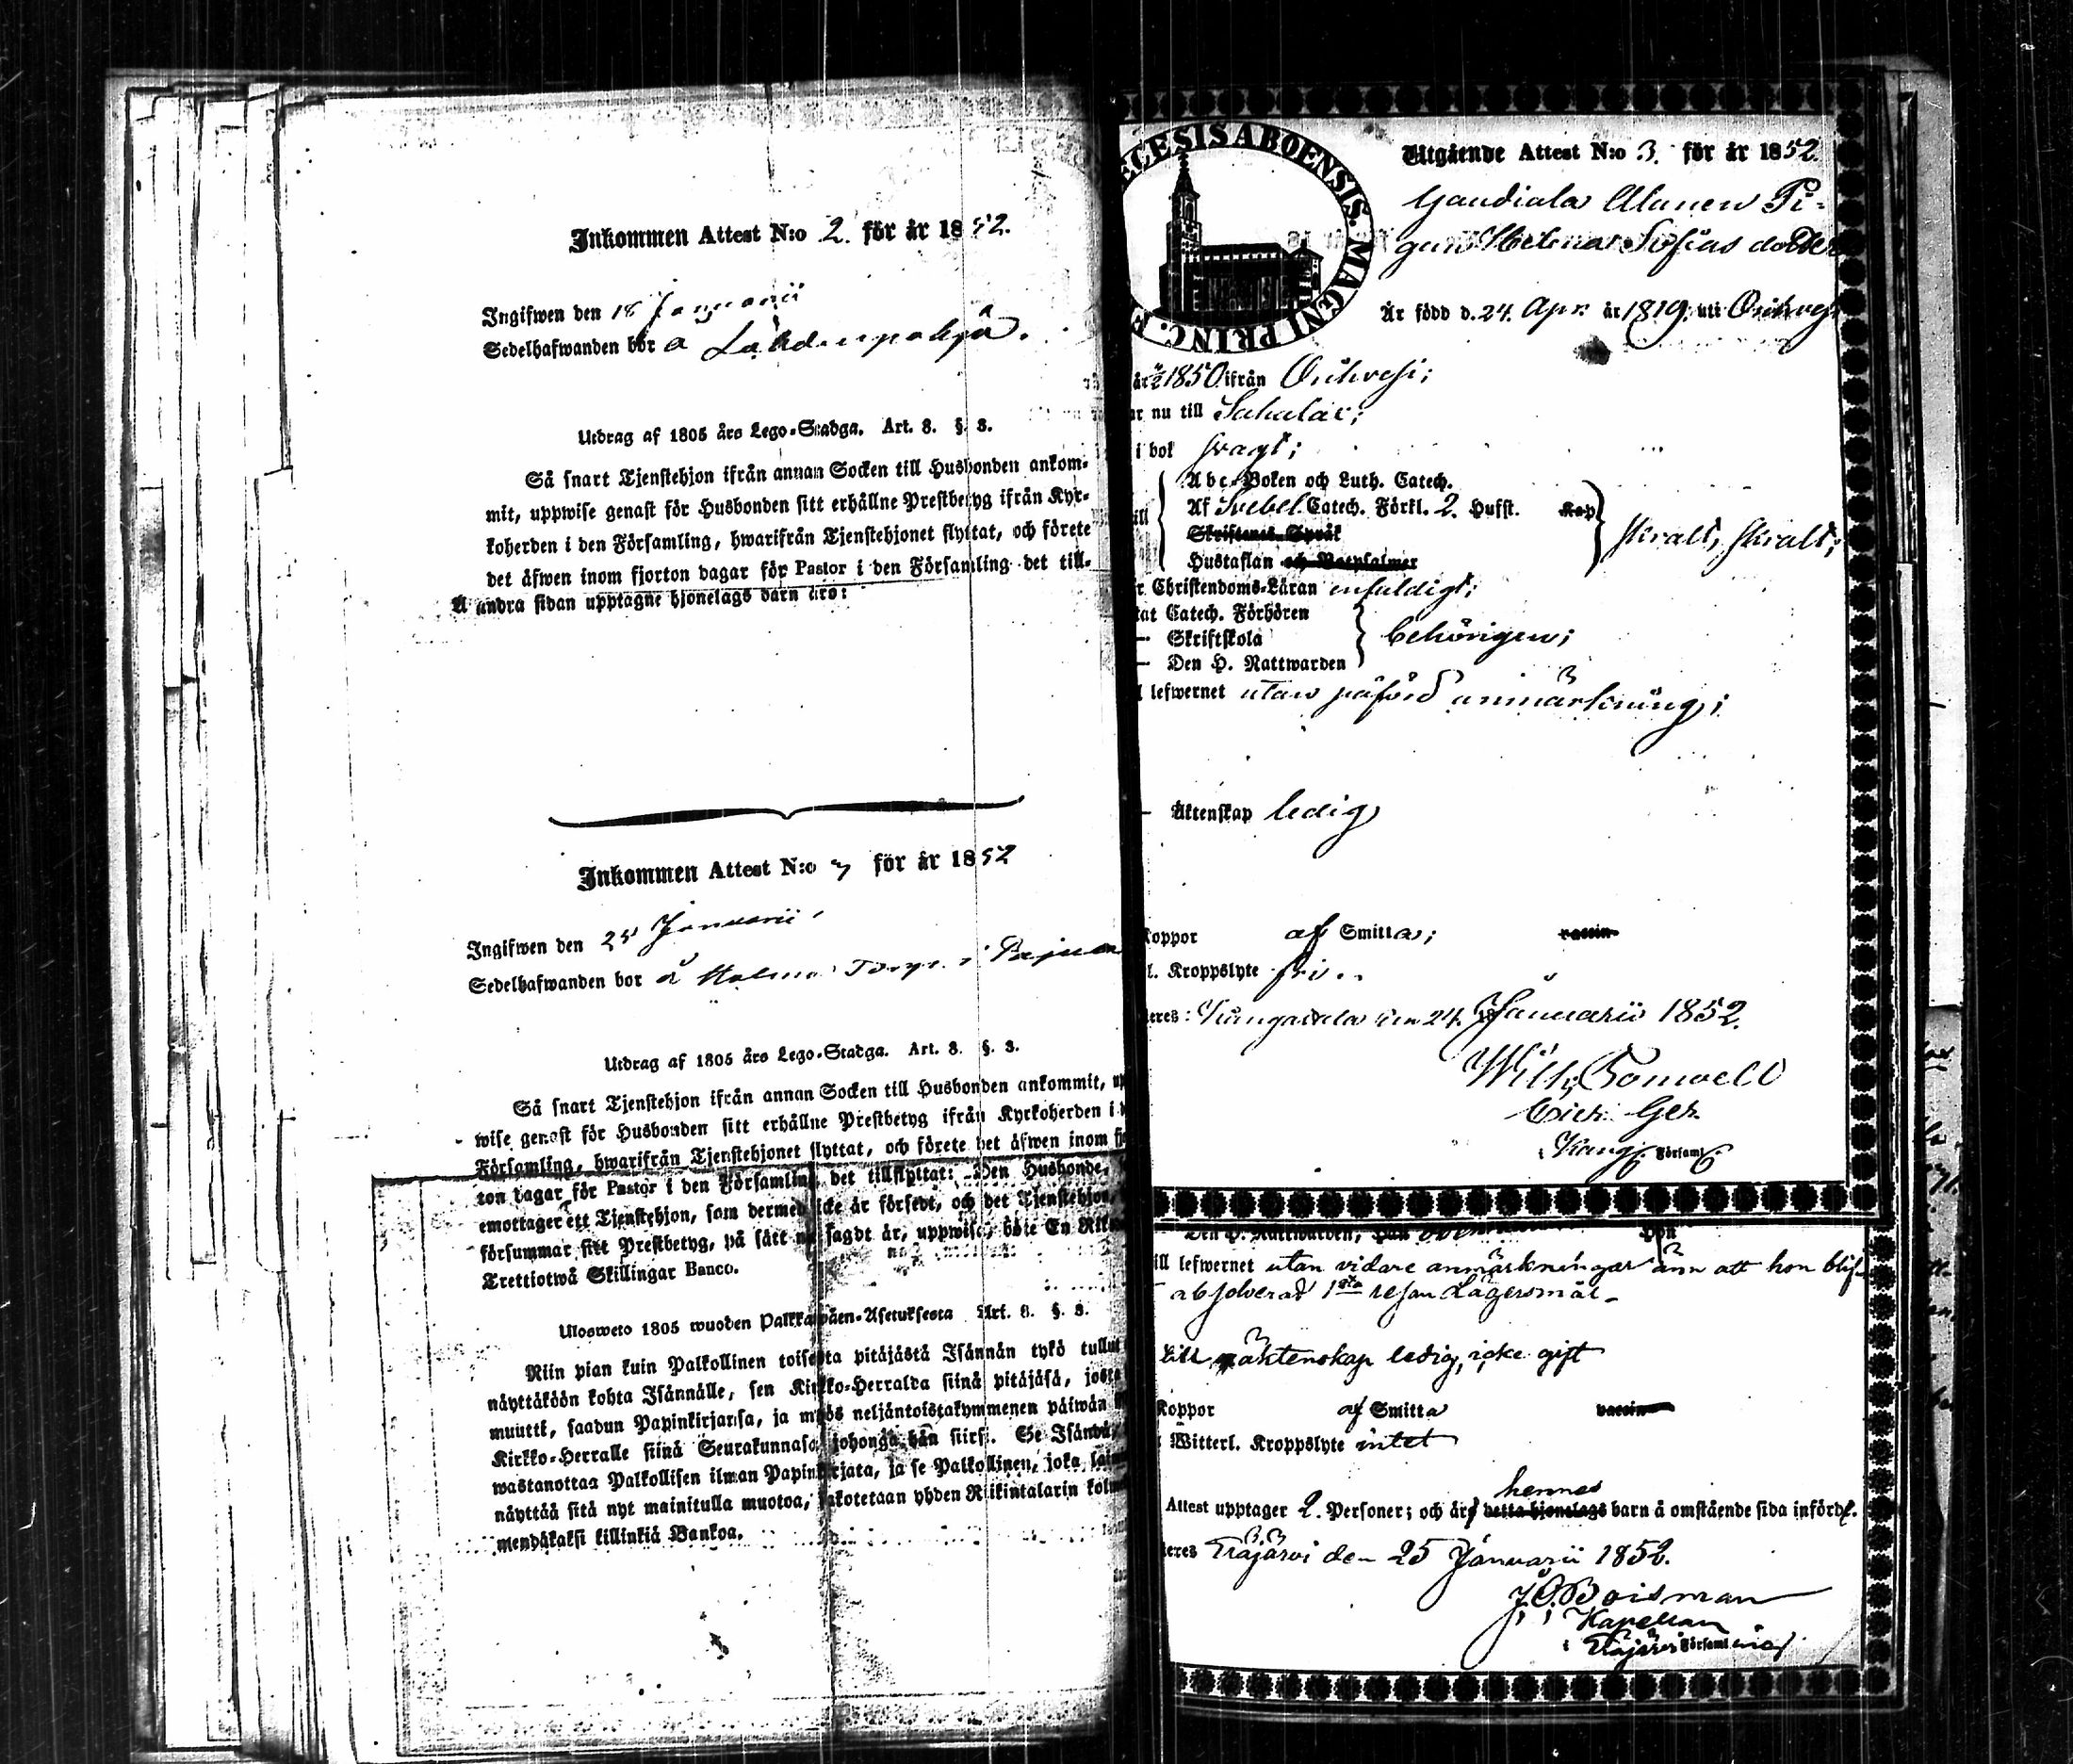 Inkommen Attest N:o 2. för år 1852.
Ingifwen den 18 Januarii
Sedelhafwanden bor å Lähdenpohja.
Utdrag af 1805 års Lego-Stadga. Art. 8. §. 8.
Så snart Tjenstehjon ifrån annan Socken till Husbonden ankom-
mit, uppwise genast för Husbonden sitt erhållne Prestbetyg ifrån Kyr-
koherden i den Församling, hwarifrån Tjenstehjonet flyttat, och förete
det äfwen inom fjorton dagar för Pastor i den Församling det till-
Å andra sidan upptagne hjonelags barn äro:
Inkommen Attest N:o 7 för år 1852
Ingifwen den 25 Januarii
Sedelhafwanden bor å Torp
Utdrag af 1805 års Lego-Stadga. Art. 8. §. 8.
Så snart Tjenstehjon ifrån annan Socken till Husbonden ankommit, up
wise genast för Husbonden sitt erhållne Prestbetyg ifrån Kyrkoherden i
Församling, hwarifrån Tjenstehjonet flyttat, och förete det äfwen inom fj
ton dagar för Pastor i den Församling det tillflyttat: Den Husbonde,
emottager ett Tjenstehjon, som dermed icke är försedt, och det Tjenstehjon,
försummar sitt Prestbetyg, på sätt nu sagdt är, uppwisa, böte En Riks
Trettiotwå Skillingar Banco.
Ulosweto 1805 wuoden Palkkawäen-Asetuksesta Art. 8. §. 8.
Niin pian kuin Palkollinen toisesta pitäjästä Isännän tykö tullut
näyttäköön kohta Isännälle, sen Kirkko-Herralda siinä pitäjäsä, josta
muutti, saadun Papinkirjansa, ja myös neljäntoistakymmenen päiwän
Kirkko-Herralle siinä Seurakunnasa johonga hän siirsi. Se Isändä,
wastanottaa Palkollisen ilman Papinkirjata, ja se Palkollinen, joka laim
näyttää sitä nyt mainitulla muotoa, sakotetaan yhden Riikintalarin kolm
mendäkaksi killinkiä Bankoa.
ECESIS ABOENSIS. MAGNI PRINC. F
Utgående Attest N:o 3. för år 1852.
Gandiala Alanen Pi-
gan Helena Sofias dotter
Är född d. 24. Apr. år 1819. uti Orihvesi
år 1850 ifrån Orihvesi;
ar nu till Sahalax;
i bok svagt;
Abc-Boken och Luth. Catech.
Af Svebel. Catech. Förkl. 2. Hufst. Kap
ill
Skriftenes Språk
skralt, skralt;
Hustaflan och Botpsalmer
r Christendoms-Läran enfaldigt;
tat Catech. Förhören
— Skriftskola behörigen;
— Den H. Nattwarden
l lefwernet utan påförd anmärkning;
— Äktenskap ledig
Koppor af Smitta; vaccin
l. Kroppslyte fri.
eres: Kangasala den 24. Januarii 1852.
Kang. Församl.
Den H. Nattwarden, Hon
ill lefwernet utan vidare anmärkningar än att hon blif-
absolverad 1sta resan Lägersmål-
till äktenskap ledig, icke gift
Koppor af Smitta vaccin
Witterl. Kroppslyte intet
hennes
Attest upptager 2. Personer; och äro detta hjonelags barn å omstående sida införde.
eres Eräjärvi den 25 Januarii 1852.
J. O. Boisman
Kapellan
i Eräjärvi Församling